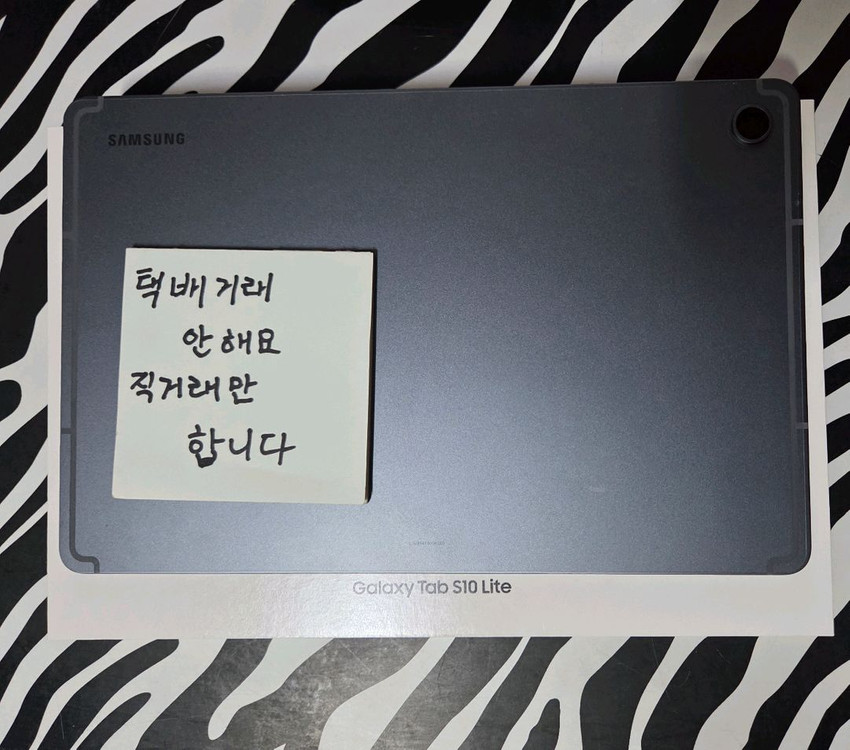 SAMSUNG
택배거래
안해요
직거래만
합니다
Galaxy Tab S10 Lite